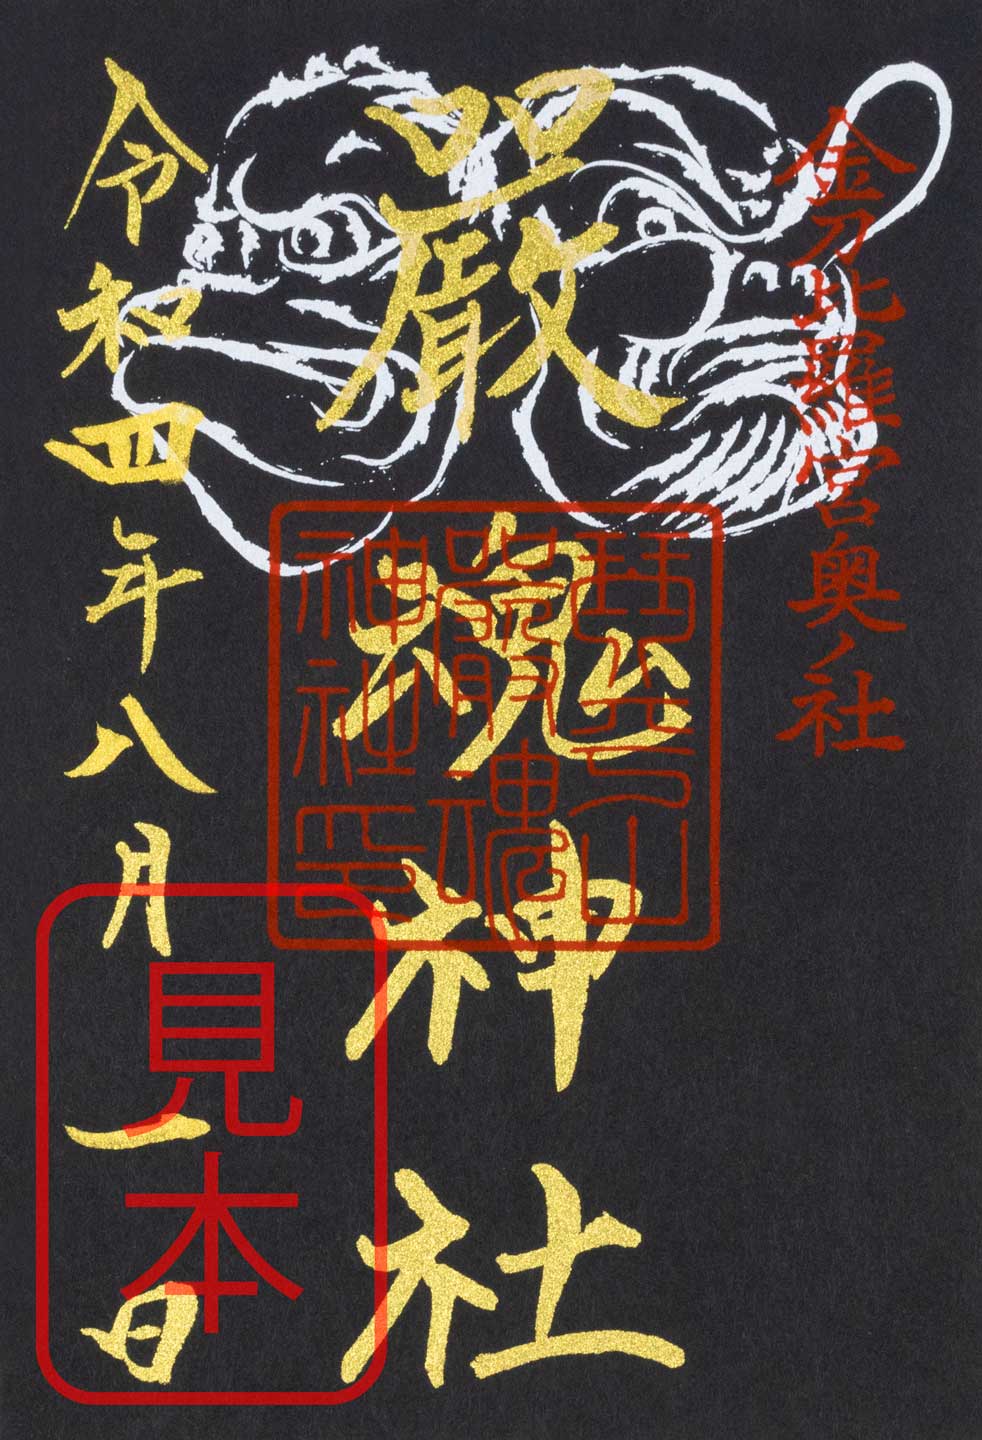 金刀比羅宮奥ノ社
嚴魂神社
琴平山
嚴魂
神社印
令和四年八月一日
見本